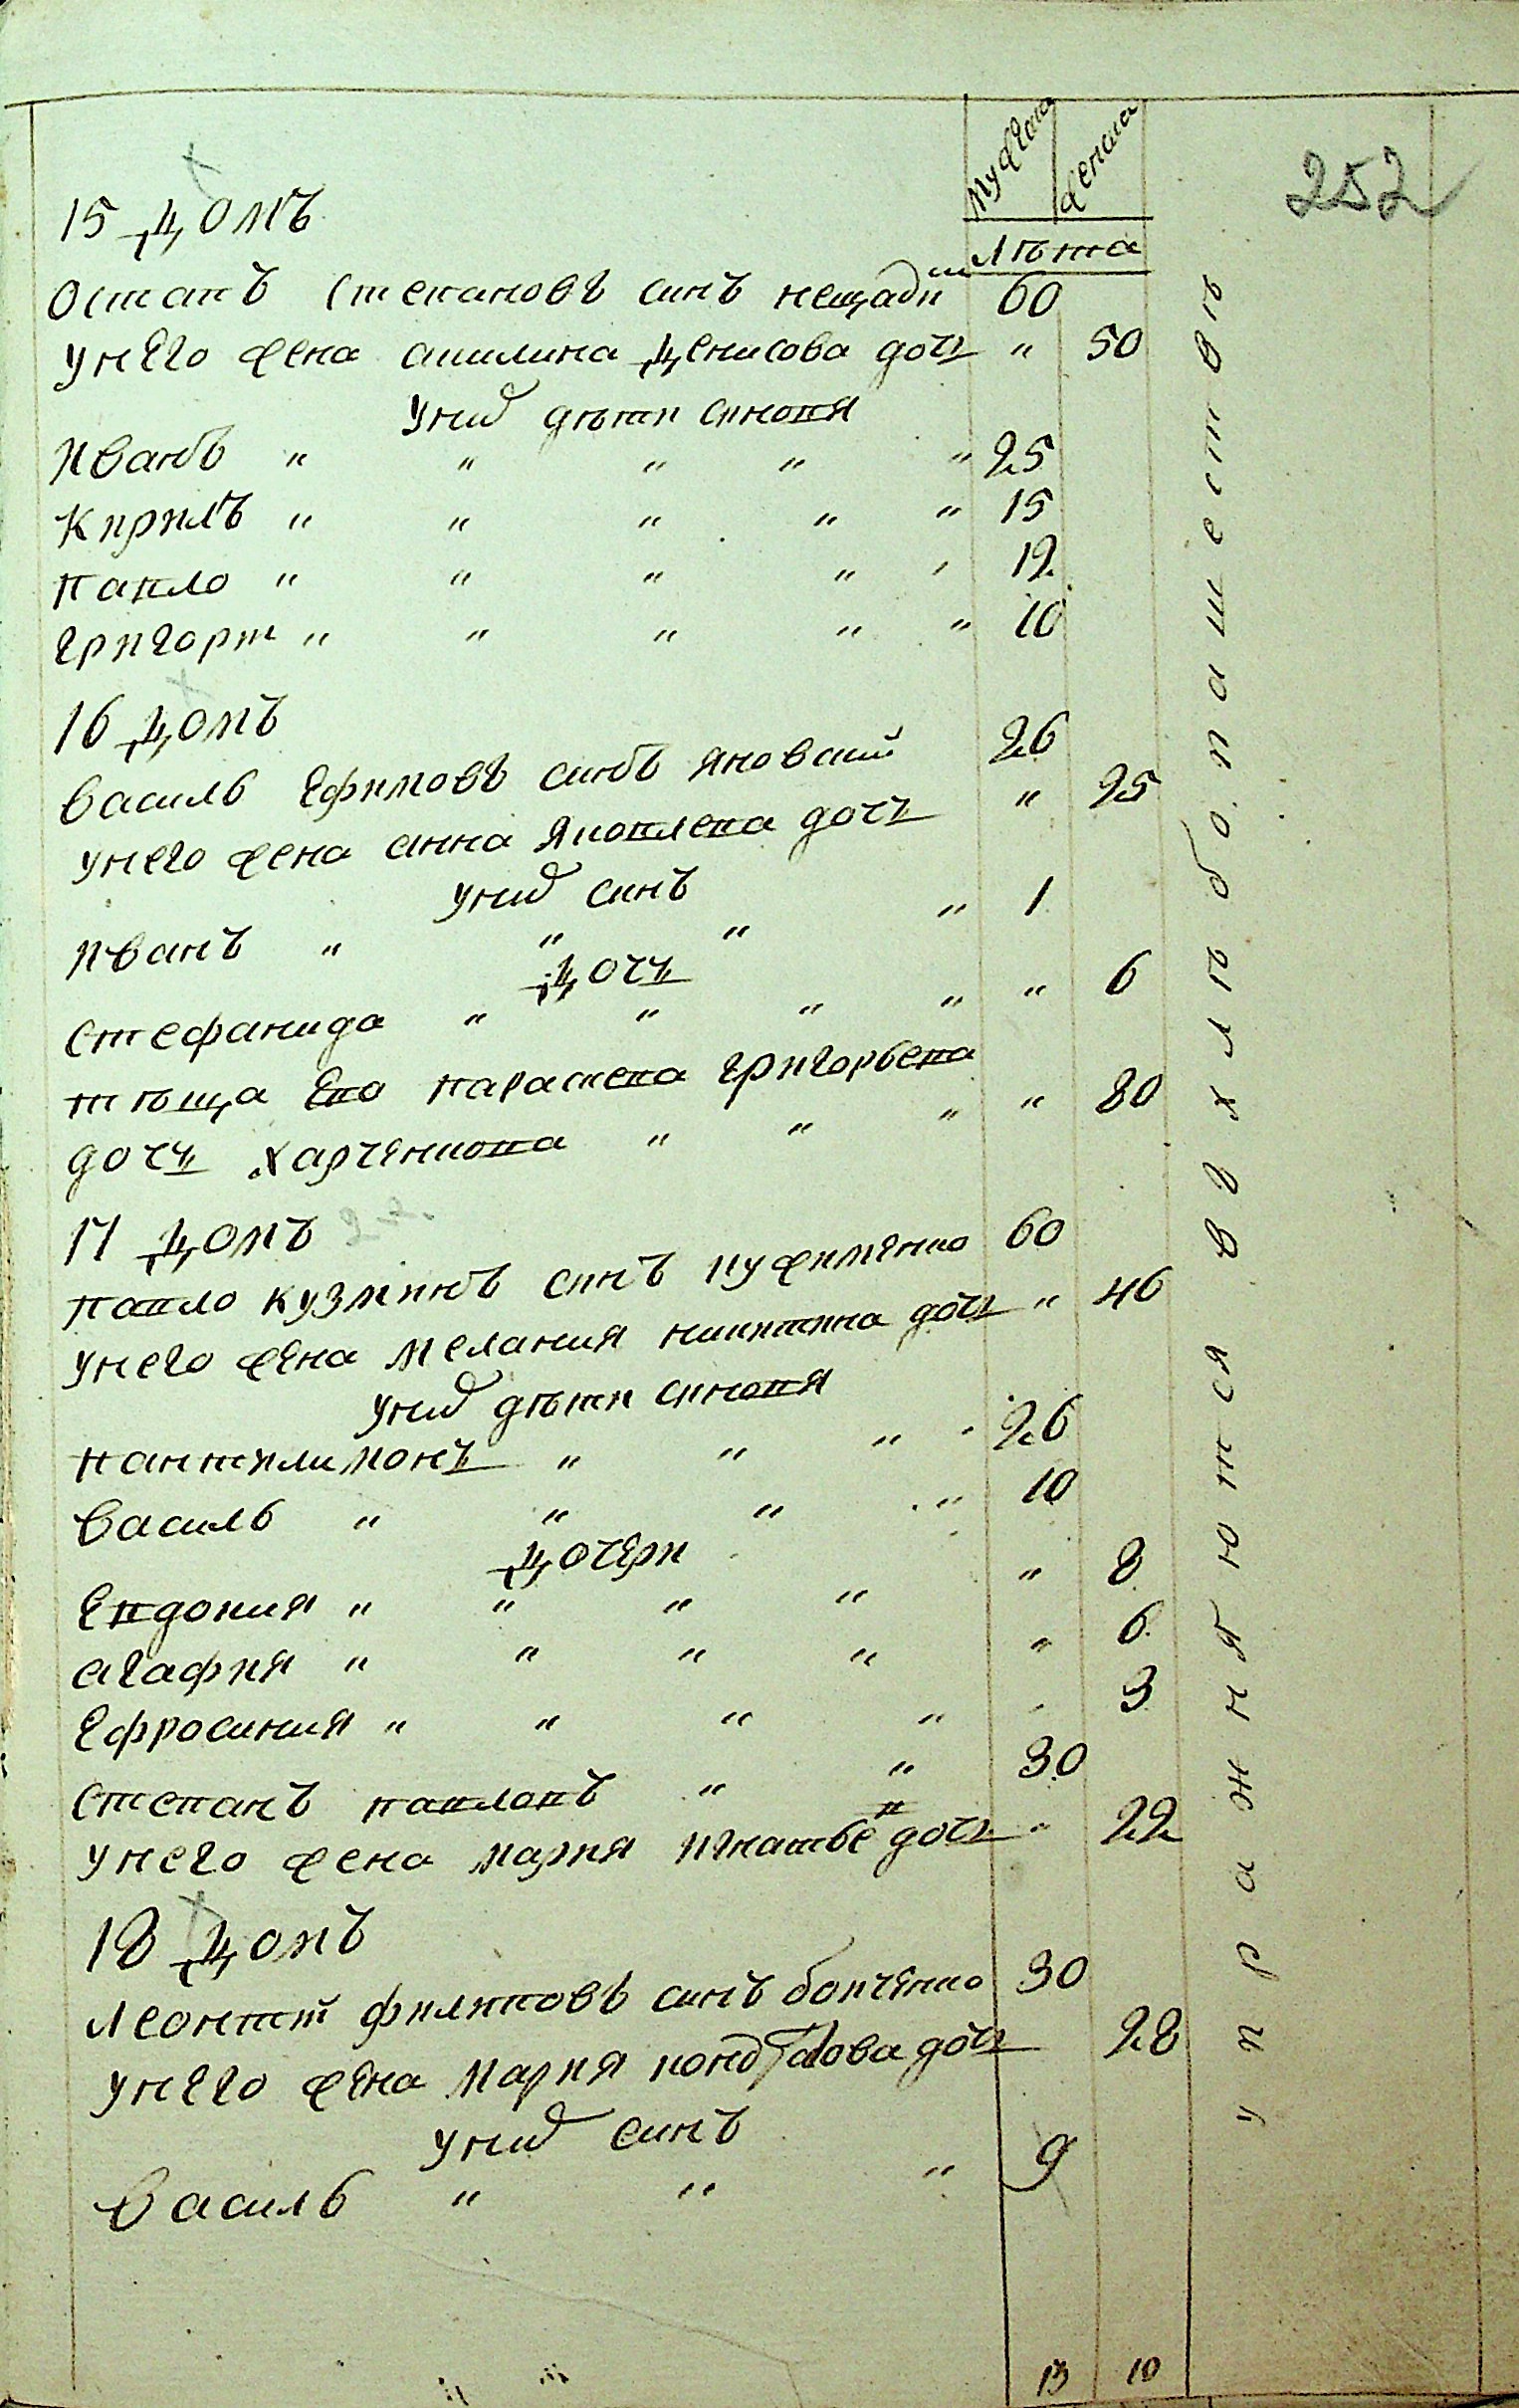 мужска женска
252
15 домъ лѣта
Остапъ Степановъ синъ нещадим 60
у него жена Акилина Денисова дочъ " 50
у них дѣти синовя
Иванъ " " " " " 25
Кирилъ " " " " " 15
Павло " " " " " 12
Григорій " " " " " 10
16 домъ
Василь Ефимовъ синъ Яновский 26
у него жена Анна Яковлева дочъ " 25
у них синъ
Иванъ " " " " 1
дочъ
Стефанида " " " " " 6
тѣща Его Параскева Григорьева
дочъ Харченкова " " " " 80
17 домъ
Павло Кузминъ синъ Куфименко 60
у него жена Мелания Никитина дочъ " 46
у них дѣти синовя
Пантилимонъ " " " " 26
Василь " " " " 10
дочери
Евдокия " " " " " 8
Агафия " " " " " 6
Ефросиния " " " " " 3
Степанъ Павловъ " " 30
у него жена Мария Игнатьева дочъ " 22
18 домъ
Леонтій Филиповъ синъ Бойченко 30
у него жена Мария Кондратова дочъ 28
у них синъ
Василь " " " 9
13 10
упражняются в хлѣбопашествѣ